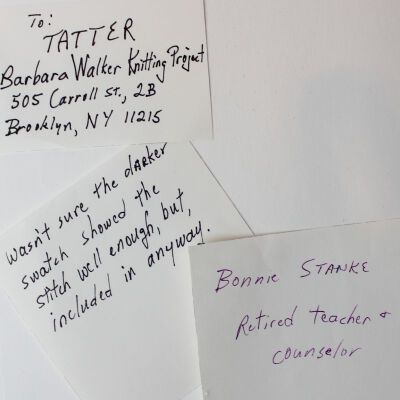 To:
TATTER
Barbara Walker Knitting Project
505 Carroll St., 2B
Brooklyn, NY 11215
wasn't sure the darker
swatch showed the
stitch well enough, but,
included in anyway.
Bonnie Stanke
Retired teacher &
counselor